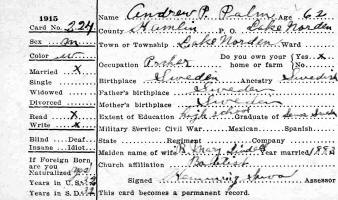 1915 Name Andrew P. Palm Age 62
Card No. 224 County Hamlin P. O. Lake Norden
Sex m Town or Township Lake Norden Ward
Color w Occupation Do you own your home or farm Yes x No
Married X Birthplace Sweden Ancestry Swedish
Single
Widowed Father's birthplace Sweden
Divorced Mother's birthplace Sweden
Read X Extent of Education High school Graduate of
Write X Military Service: Civil War Mexican Spanish
Blind Deaf State Regiment Company
Insane Idiot Maiden name of wife Year married
If Foreign Born, are you Naturalized yes Church affiliation Baptist
Years in U. S. Signed Assessor
Years in S. D. This card becomes a permanent record.